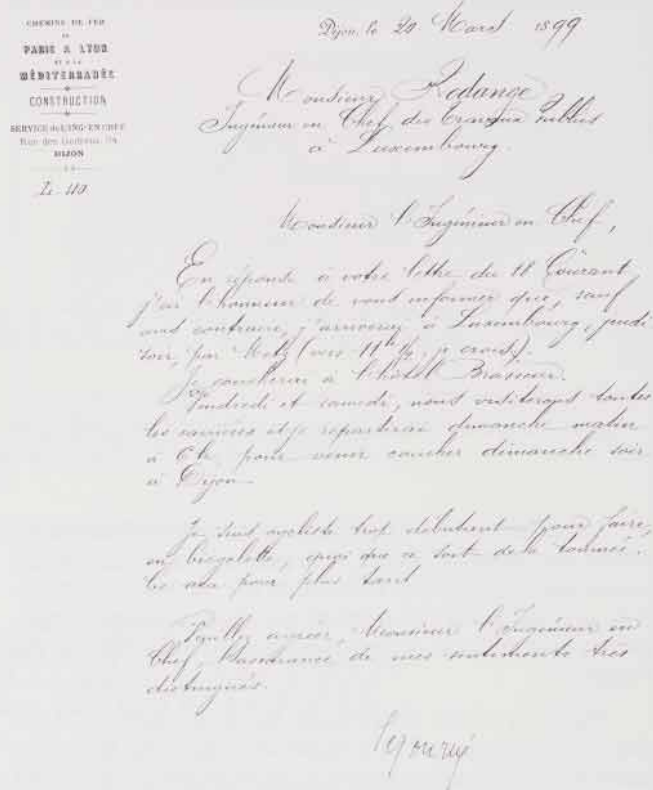 CHEMINS DE FER
DE
PARIS A LYON
ET A LA
MÉDITERRANÉE
CONSTRUCTION
SERVICE de L'ING. EN CHEF
DIJON
Dijon, le 20 Mars 1899
Monsieur Rodange
Ingénieur en Chef des Travaux Publics
à Luxembourg.
Monsieur l'Ingénieur en Chef,
En réponse à votre lettre du 18 Courant,
j'ai l'honneur de vous informer que, sauf
avis contraire, j'arriverai à Luxembourg, jeudi
soir, par Metz (vers 11h ¼, je crois).
Je coucherai à l'hôtel Brasseur.
Vendredi et samedi, nous visiterons toutes
les carrières et je repartirai dimanche matin
à 6h pour venir coucher dimanche soir
à Dijon.
Je suis cycliste trop débutant pour faire,
en bicyclette, quoi que ce soit de la tournée.
Ce sera pour plus tard
Veuillez agréer, Monsieur l'Ingénieur en
Chef, l'assurance de mes sentiments très
distingués.
Séjourné